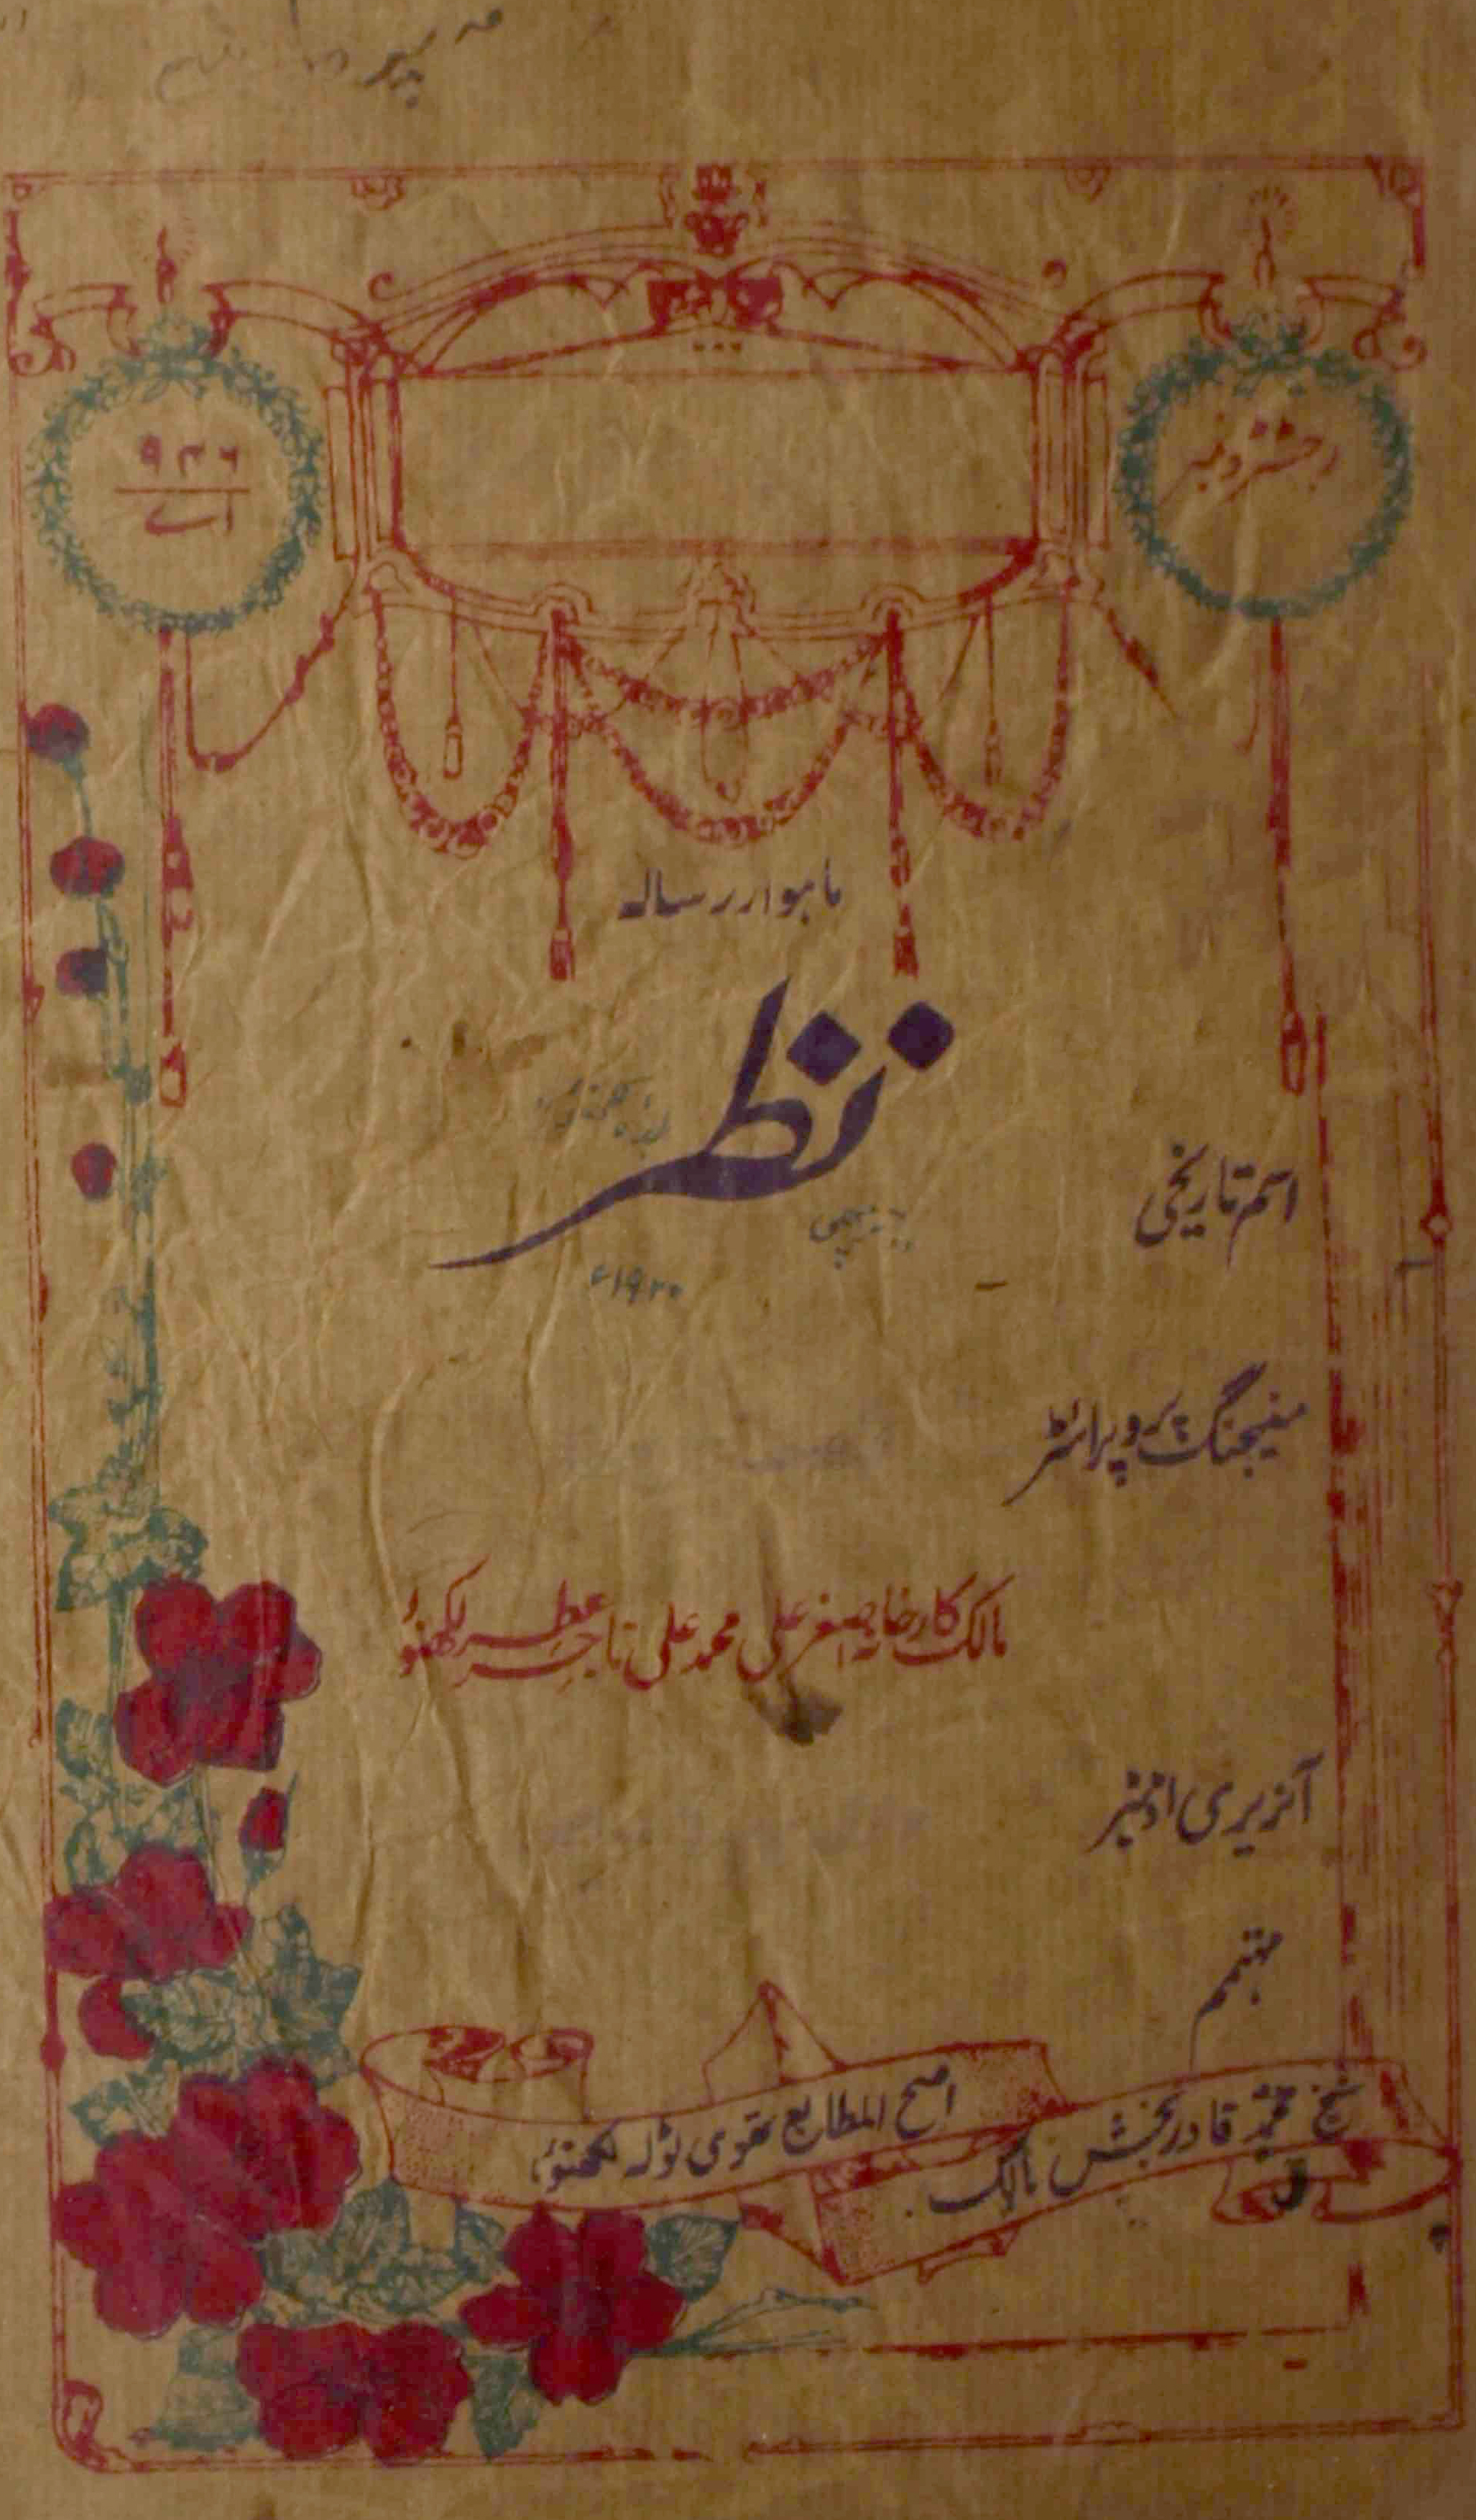 رجسٹرڈ نمبر
۹۳۶
اے
ماہوار رسالہ
نظر
اسم تاریخی
۱۹۲۰ء
منیجنگ پروپرائٹر
مالک کارخانہ اصغر علی محمد علی تاجر عطر لکھنؤ
آنریری اڈیٹر
مہتمم
شیخ محمد قادر بخش مالک
اصح المطابع نقوی ٹولہ لکھنؤ